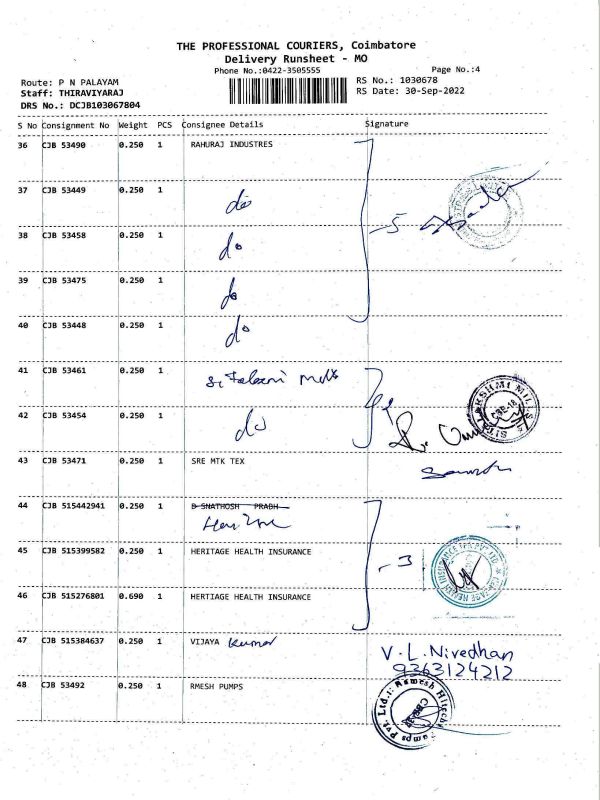 THE PROFESSIONAL COURIERS, Coimbatore
Delivery Runsheet - MO
Phone No.:0422-3505555
Page No.:4
Route: P N PALAYAM
RS No.: 1030678
Staff: THIRAVIYARAJ
RS Date: 30-Sep-2022
DRS No.: DCJB103067804
S No Consignment No Weight PCS Consignee Details Signature
36 CJB 53490 0.250 1 RAHURAJ INDUSTRES
37 CJB 53449 0.250 1 do
- 5
38 CJB 53458 0.250 1 do
39 CJB 53475 0.250 1 do
40 CJB 53448 0.250 1 do
41 CJB 53461 0.250 1
42 CJB 53454 0.250 1 do
SITALAKSHMI MILLS
CBE-18
43 CJB 53471 0.250 1 SRE MTK TEX
44 CJB 515442941 0.250 1 D SNATHOSH PRABH
45 CJB 515399582 0.250 1 HERITAGE HEALTH INSURANCE
- 3
46 CJB 515276801 0.690 1 HERTIAGE HEALTH INSURANCE
47 CJB 515384637 0.250 1 VIJAYA Kumar
V. L. Nivedhan
9363124212
48 CJB 53492 0.250 1 RMESH PUMPS
Ramesh Hitech Pumps Pvt. Ltd.